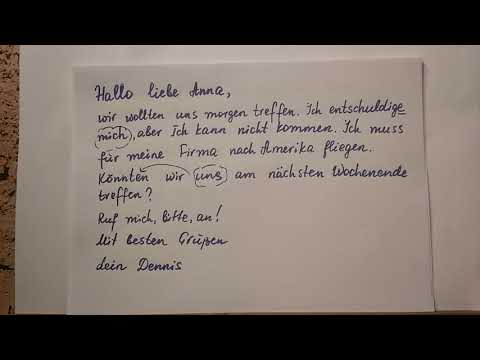 Hallo liebe Anna,
wir wollten uns morgen treffen. Ich entschuldige
mich, aber Ich kann nicht kommen. Ich muss
für meine Firma nach Amerika fliegen.
Könnten wir uns am nächsten Wochenende
treffen?
Ruf mich, bitte, an!
Mit besten Grüßen
dein Dennis